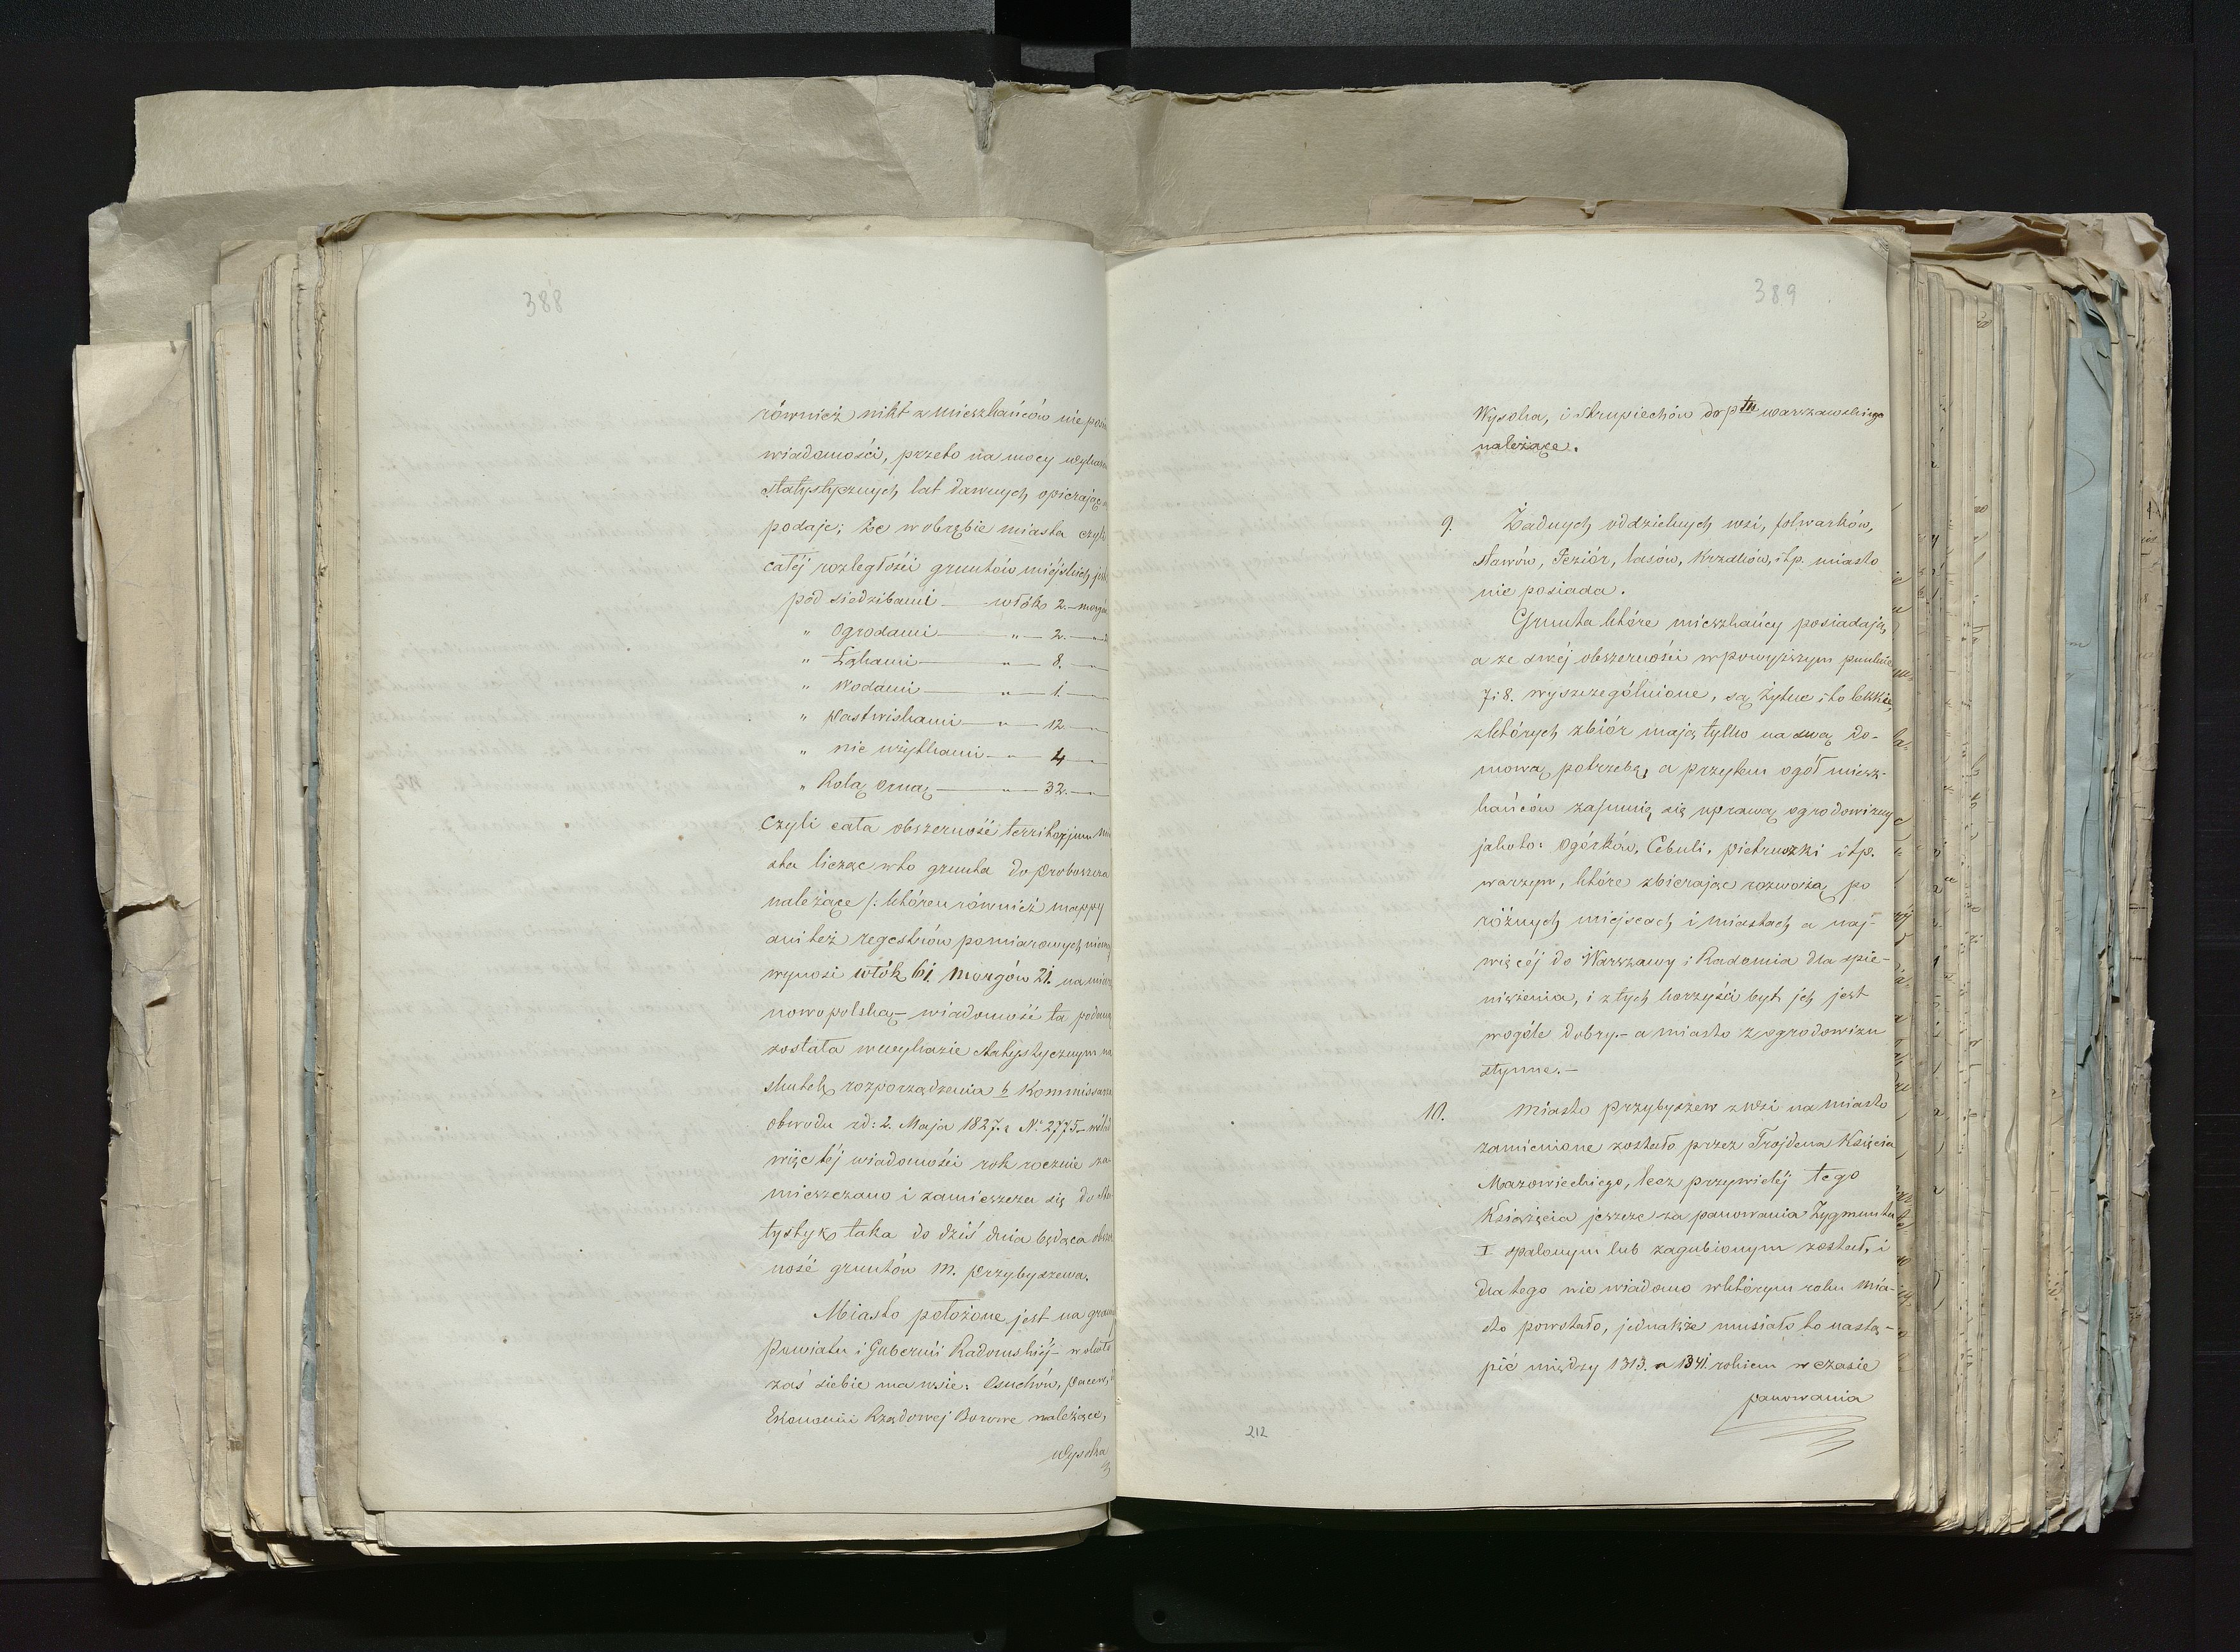 388
również nikt z mieszkańców nie
wiadomości, przeto na mocy
statystycznych lat dawnych
podaje; że w obrębie miasta czyli
całéj rozległości gruntów miéjskich jest
pod siedzibami — włók 2. —
" Ogrodami — " — 2. —
" Łąkami — " — 8. —
" Wodami — " — 1. —
" pastwiskami — " — 12. —
" nie użytkami — " — 4 —
" Rolą orną — " — 32. —
Czyli cała obszerność territorjum
sta licząc w to grunta do proboszcza
należące /: któren również mappy
ani też regestrów pomiarowych
wynosi włók 61. morgów 21. na
nowopolską – wiadomość ta
została w wykazie statystycznym
skutek rozporządzenia b Kommissarza
obwodu zd: 2. Maja 1827. r N: 2775 –
więc téj wiadomości rok rocznie za-
mieszczano i zamieszcza się do Sta
tystyk taka do dziś dnia będąca
ność gruntów M. Przybyszewa.
Miasto położone jest na
Powiatu i Gubernii Radomskiéj –
zaś siebie ma wsie: Osuchów, Pacew,
Ekonomii Rządowej Borowe należące,
Wysoka
389
Wysoka, i Skrupiechów do ptu warszawskiego
należące.
9. Żadnych oddzielnych wsi, folwarków,
stawów, Jeziór, lasów, Krzaków, itp. miasto
nie posiada.
Grunta które mieszkańcy posiadają,
a ze swéj obszerności w powyższym punkcie
7 i 8. wyszczególnione, są żytne i to lekkie,
z których zbiór mają tylko na swą do-
mową potrzebę, a przytem ogół miesz-
kańców zajmuię się uprawą ogrodowizny
jakoto: ogórków, Cebuli, pietruszki itp.
warzyw, które zbierając rozwożą po
różnych miejscach i miastach a naj-
więcéj do Warszawy i Radomia dla spie-
niężenia, i z tych korzyści byt jch jest
wogóle dobry. – a miasto z ogrodowizn
słynne. –
10. Miasto przybyszew z wsi na miasto
zamienione zostało przez Trojdena Księcia
Mazowieckiego, lecz przywiléj tego
Książęcia jeszcze za panowania Zygmunta
I spalonym lub zagubionym został, i
dla tego nie wiadomo w którym roku mia-
sto powstało, jednakże musiało to nastą-
pić między 1313. a 1341. rokiem w czasie
panowania
212